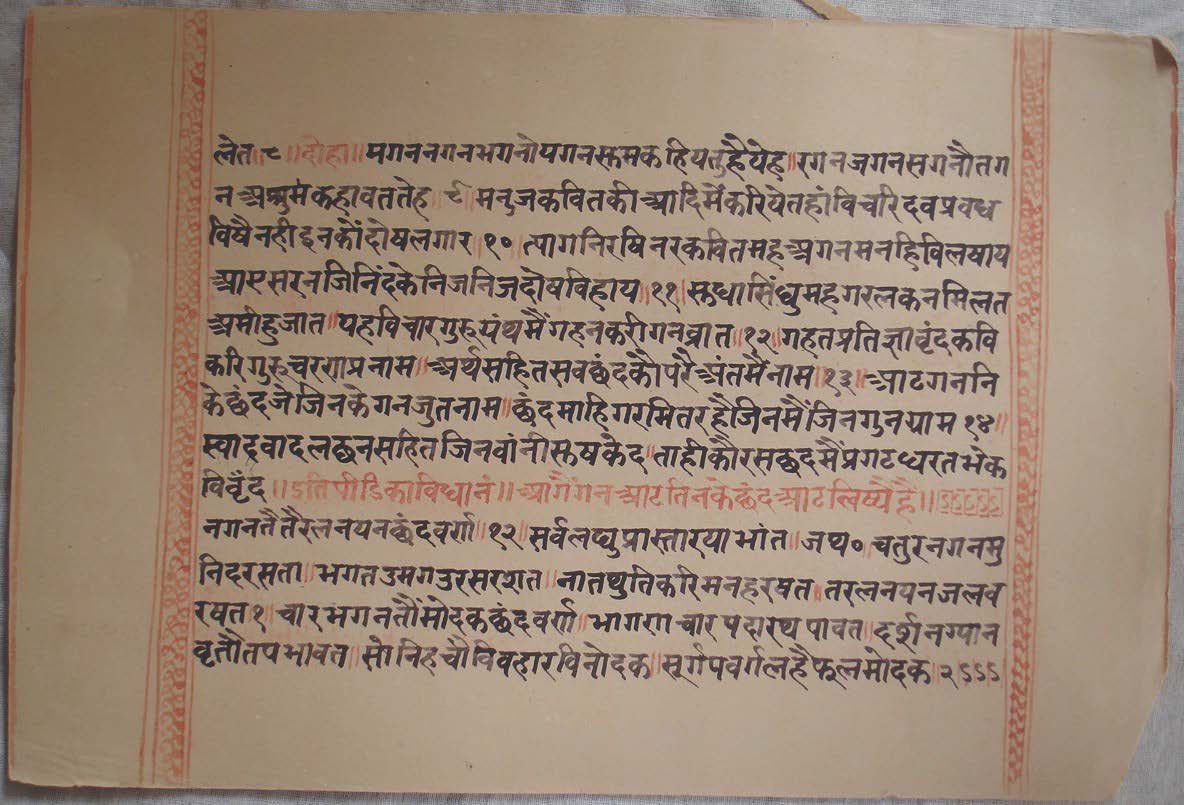 लेत ८ ॥दोहा॥ यगन नगन भगनोयगन सुभ कहियतु है येह॥ रगन जगन सगनौ तग
न असुभ कहावत तेह ९ मनुज कवित की आदि मैं करिये तहां विचारि देव प्रवध
विषै नही इन कौं दोष लगार १० त्याग निरषि नर कवित मह अगन मनहि विलषाय
आए सरन जिनिंद के निज निज दोष विहाय॥११॥ सुधा सिंधु मह गरल कन मिलत
अमी हु जात॥ यह विचार गुरु पंथ मैं गहन करी गन व्रात॥१२॥ गहत प्रतिज्ञा वृंद कवि
करि गुरु चरण प्रनाम॥ अर्थ सहित सव छंद कौ परै अंत मैं नाम॥१३॥ आठ गननि
के छंद जे जिन के गन जुत नाम॥ छंद माहि गरभित रहै जिन मैं जिन गुन ग्राम १४॥
स्याद वाद लछन सहित जिनवांनी सुष केद॥ ताही कौ रस छंद मैं प्रगट धरत भ क
वि वृंद॥ ॥इति पीठिका विधानं॥ आगैं गन आठ तिन के छंद आठ लिष्यै है॥
नगन तै तरल नयन छंद वर्ण॥१२॥ सर्व लघु प्रास्तार या भांत॥ जथ० चतुर नगन मु
नि दरसत॥ भगत उमग उर सरसत॥ नात थुति करि मन हरषत॥ तरल नयन जल व
रषत १॥ चार भगन तौं मोदक छंद वर्ण॥ भागण चार पदारथ पावत॥ दर्शन ग्यान
वृतौ तप भावत॥ सो निहचौ विवहार विनोदक॥ सूर्ग पवर्ग लहै फल मोदक॥२ऽऽऽ